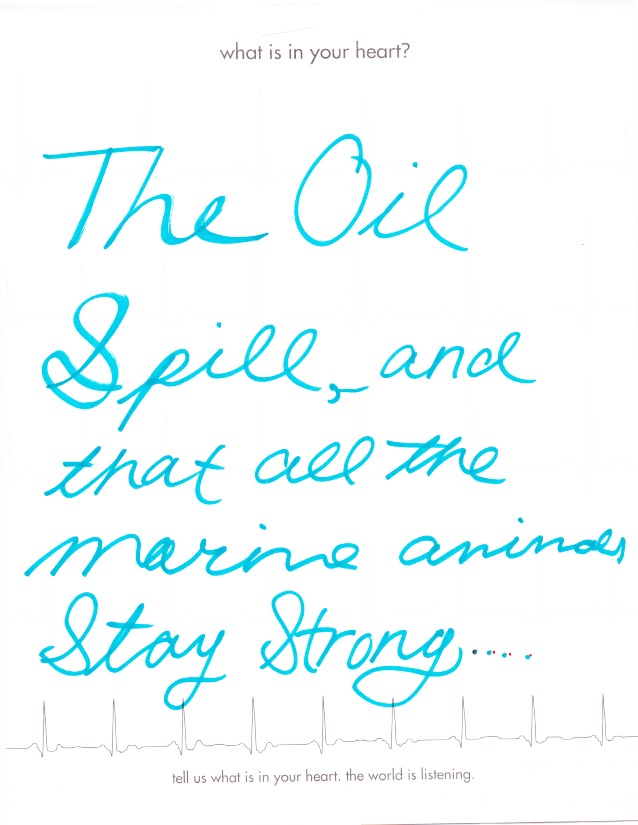 what is in your heart?
The Oil
Spill, and
that all the
marine animals
Stay Strong....
tell us what is in your heart. the world is listening.